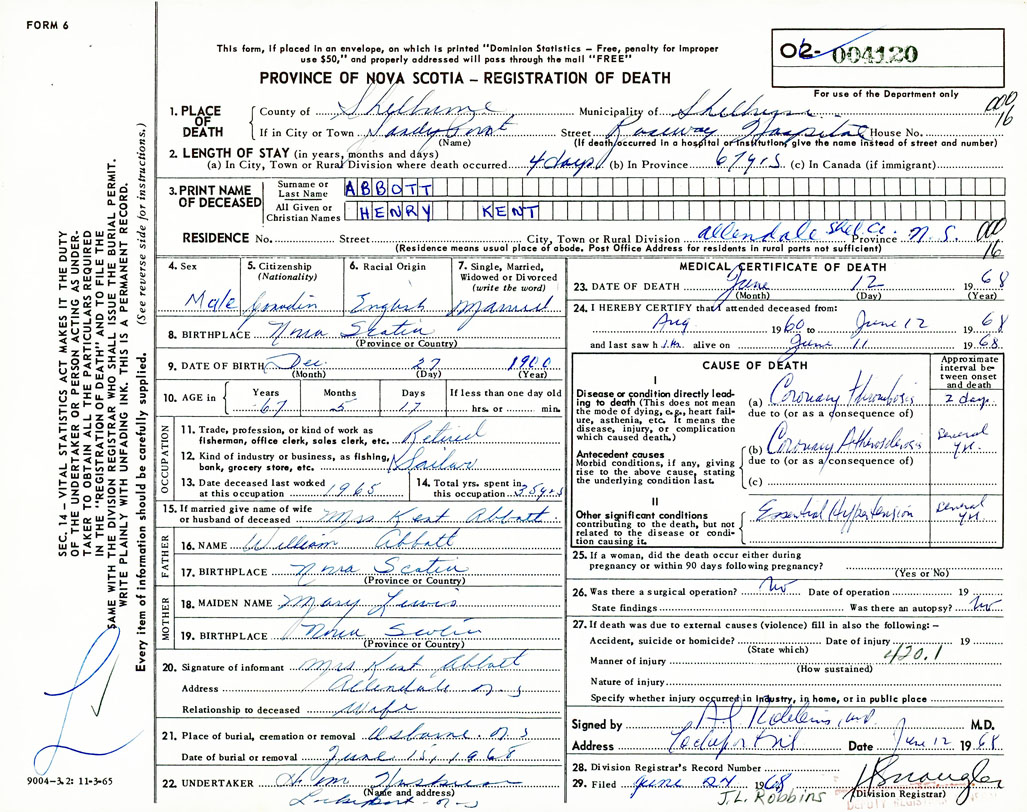 FORM 6
This form, if placed in an envelope, on which is printed "Dominion Statistics – Free, penalty for improper
use $50," and properly addressed will pass through the mail "FREE"
PROVINCE OF NOVA SCOTIA – REGISTRATION OF DEATH
004120
For use of the Department only
SEC. 14 – VITAL STATISTICS ACT MAKES IT THE DUTY
OF THE UNDERTAKER OR PERSON ACTING AS UNDER-
TAKER TO OBTAIN ALL THE PARTICULARS REQUIRED
IN THE "REGISTRATION OF DEATH" AND TO FILE THE
SAME WITH THE DIVISION REGISTRAR WHO SHALL ISSUE THE BURIAL PERMIT.
WRITE PLAINLY WITH UNFADING INK. THIS IS A PERMANENT RECORD.
Every item of information should be carefully supplied. (See reverse side for instructions.)
1. PLACE OF DEATH
County of Shelburne Municipality of Shelburne
000 16
If in City or Town Sandy Point Street Roseway Hospital House No.
(Name) (If death occurred in a hospital or institution, give the name instead of street and number)
2. LENGTH OF STAY (in years, months and days)
(a) In City, Town or Rural Division where death occurred 4 days (b) In Province 67 yrs (c) In Canada (if immigrant)
3. PRINT NAME OF DECEASED
Surname or Last Name ABBOTT
All Given or Christian Names HENRY KENT
RESIDENCE No. Street City, Town or Rural Division Allendale Shel Co. Province N.S. 000 16
(Residence means usual place of abode. Post Office Address for residents in rural parts not sufficient)
4. Sex Male
5. Citizenship (Nationality)
6. Racial Origin English
7. Single, Married, Widowed or Divorced (write the word) Married
8. BIRTHPLACE Nova Scotia
(Province or Country)
9. DATE OF BIRTH Dec. 27 1900
(Month) (Day) (Year)
10. AGE in Years 67 Months 5 Days 17 If less than one day old hrs. or min.
OCCUPATION
11. Trade, profession or kind of work as
fisherman, office clerk, sales clerk, etc. Retired
12. Kind of industry or business, as fishing,
bank, grocery store, etc. Sailor
13. Date deceased last worked
at this occupation 1965
14. Total yrs. spent in
this occupation 35 yrs
15. If married give name of wife
or husband of deceased Mrs Kent Abbott
FATHER
16. NAME William Abbott
17. BIRTHPLACE Nova Scotia
(Province or Country)
MOTHER
18. MAIDEN NAME Mary Lewis
19. BIRTHPLACE Nova Scotia
(Province or Country)
20. Signature of informant Mrs Kent Abbott
Address Allendale N.S
Relationship to deceased wife
21. Place of burial, cremation or removal Osborne N.S
Date of burial or removal June 15, 1968
22. UNDERTAKER
(Name and address)
Lockeport N.S
9004-3.2: 11-3-65
MEDICAL CERTIFICATE OF DEATH
23. DATE OF DEATH June 12 1968
(Month) (Day) (Year)
24. I HEREBY CERTIFY that I attended deceased from:
Aug. 1960 to June 12 1968
and last saw him alive on June 11 1968
CAUSE OF DEATH
Approximate interval between onset and death
I
Disease or condition directly lead-
ing to death (This does not mean
the mode of dying, e.g., heart fail-
ure, asthenia, etc. It means the
disease, injury, or complication
which caused death.)
(a) Coronary thrombosis 2 days
due to (or as a consequence of)
Antecedent causes
Morbid conditions, if any, giving
rise to the above cause, stating
the underlying condition last.
(b) Coronary Atherosclerosis Several yrs.
due to (or as a consequence of)
(c)
II
Other significant conditions
contributing to the death, but not
related to the disease or condi-
tion causing it.
Essential Hypertension Several yrs.
25. If a woman, did the death occur either during
pregnancy or within 90 days following pregnancy?
(Yes or No)
26. Was there a surgical operation? No Date of operation 19
State findings Was there an autopsy? No
27. If death was due to external causes (violence) fill in also the following: –
Accident, suicide or homicide? Date of injury 19
(State which)
420.1
Manner of injury
(How sustained)
Nature of injury
Specify whether injury occurred in industry, in home, or in public place
Signed by M.D.
Address Date June 12 1968
28. Division Registrar's Record Number
29. Filed June 27 1968
J.L. Robbins (Division Registrar)